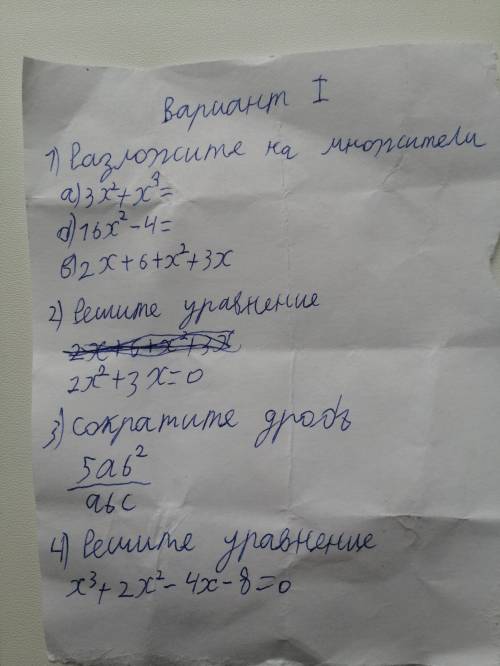 Вариант I
1) Разложите на множители
а) 3x²+x³=
б) 16x²-4=
в) 2x+6+x²+3x
2) Решите уравнение
2x+6+x²+3x
2x²+3x=0
3) Сократите дробь
5ab²
abc
4) Решите уравнение
x³+2x²-4x-8=0